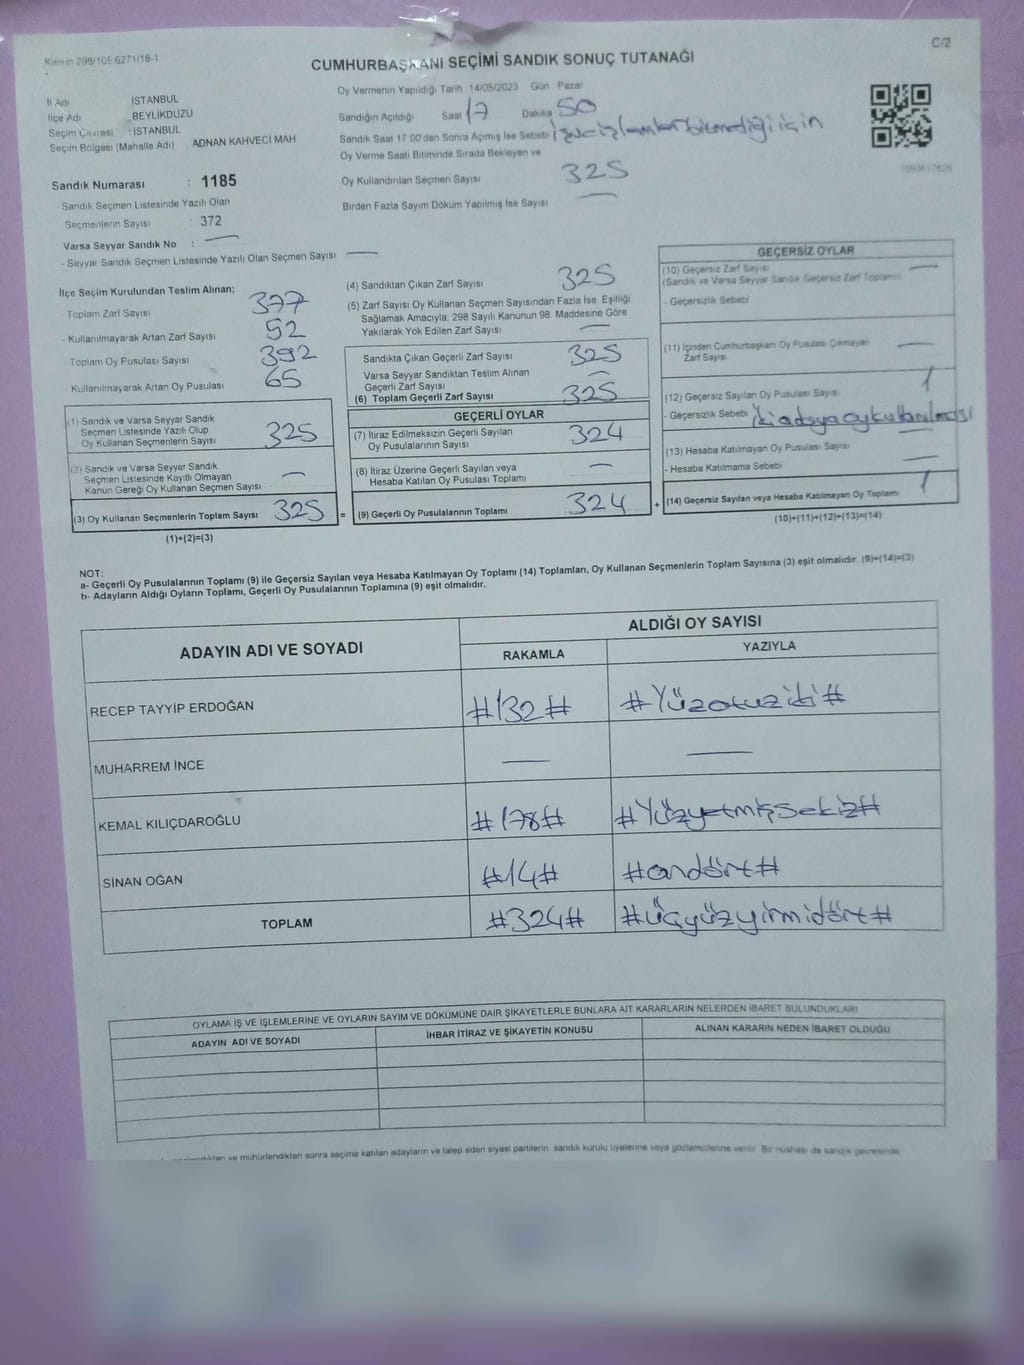 Kanun 298/105 6271/18-1
C/2
CUMHURBAŞKANI SEÇİMİ SANDIK SONUÇ TUTANAĞI
İl Adı İSTANBUL
İlçe Adı BEYLİKDÜZÜ
Seçim Çevresi : İSTANBUL
Seçim Bölgesi (Mahalle Adı) ADNAN KAHVECİ MAH
Sandık Numarası : 1185
Sandık Seçmen Listesinde Yazılı Olan
Seçmenlerin Sayısı : 372
Varsa Seyyar Sandık No : —
- Seyyar Sandık Seçmen Listesinde Yazılı Olan Seçmen Sayısı —
Oy Vermenin Yapıldığı Tarih 14/05/2023 Gün Pazar
Sandığın Açıldığı Saat 17 Dakika 50
Sandık Saat 17 00'den Sonra Açımış İse Sebebi işlemler bitmediği için
Oy Verme Saati Bitiminde Sırada Bekleyen ve
Oy Kullandırılan Seçmen Sayısı 325
Birden Fazla Sayım Döküm Yapılmış İse Sayısı —
İlçe Seçim Kurulundan Teslim Alınan;
- Toplam Zarf Sayısı 377
- Kullanılmayarak Artan Zarf Sayısı 52
Toplam Oy Pusulası Sayısı 392
- Kullanılmayarak Artan Oy Pusulası 65
(1) Sandık ve Varsa Seyyar Sandık
Seçmen Listesinde Yazılı Olup
Oy Kullanan Seçmenlerin Sayısı 325
(2) Sandık ve Varsa Seyyar Sandık
Seçmen Listesinde Kayıtlı Olmayan
Kanun Gereği Oy Kullanan Seçmen Sayısı —
(3) Oy Kullanan Seçmenlerin Toplam Sayısı 325 =
(1)+(2)=(3)
(4) Sandıktan Çıkan Zarf Sayısı 325
(5) Zarf Sayısı Oy Kullanan Seçmen Sayısından Fazla İse, Eşitliği
Sağlamak Amacıyla, 298 Sayılı Kanunun 98 Maddesine Göre
Yakılarak Yok Edilen Zarf Sayısı —
Sandıkta Çıkan Geçerli Zarf Sayısı 325
Varsa Seyyar Sandıktan Teslim Alınan
Geçerli Zarf Sayısı —
(6) Toplam Geçerli Zarf Sayısı 325
GEÇERLİ OYLAR
(7) İtiraz Edilmeksizin Geçerli Sayılan
Oy Pusulalarının Sayısı 324
(8) İtiraz Üzerine Geçerli Sayılan veya
Hesaba Katılan Oy Pusulası Toplamı —
(9) Geçerli Oy Pusulalarının Toplamı 324 +
GEÇERSİZ OYLAR
(10) Geçersiz Zarf Sayısı —
(Sandık ve Varsa Seyyar Sandık Geçersiz Zarf Toplamı)
- Geçersizlik Sebebi
(11) İçinden Cumhurbaşkanı Oy Pusulası Çıkmayan
Zarf Sayısı —
(12) Geçersiz Sayılan Oy Pusulası Sayısı 1
- Geçersizlik Sebebi İki adaya oy kullanılması
(13) Hesaba Katılmayan Oy Pusulası Sayısı —
- Hesaba Katılmama Sebebi
(14) Geçersiz Sayılan veya Hesaba Katılmayan Oy Toplamı 1
(10)+(11)+(12)+(13)=(14)
NOT:
a- Geçerli Oy Pusulalarının Toplamı (9) ile Geçersiz Sayılan veya Hesaba Katılmayan Oy Toplamı (14) Toplamları, Oy Kullanan Seçmenlerin Toplam Sayısına (3) eşit olmalıdır. (9)+(14)=(3)
b- Adayların Aldığı Oyların Toplamı, Geçerli Oy Pusulalarının Toplamına (9) eşit olmalıdır.
ADAYIN ADI VE SOYADI
ALDIĞI OY SAYISI
RAKAMLA YAZIYLA
RECEP TAYYİP ERDOĞAN #132# #Yüzotuziki#
MUHARREM İNCE — —
KEMAL KILIÇDAROĞLU #178# #Yüzyetmişsekiz#
SİNAN OĞAN #14# #ondört#
TOPLAM #324# #üçyüzyirmidört#
OYLAMA İŞ VE İŞLEMLERİNE VE OYLARIN SAYIM VE DÖKÜMÜNE DAİR ŞİKAYETLERLE BUNLARA AİT KARARLARIN NELERDEN İBARET BULUNDUKLARI
ADAYIN ADI VE SOYADI İHBAR İTİRAZ VE ŞİKAYETİN KONUSU ALINAN KARARIN NEDEN İBARET OLDUĞU
ve mühürlendikten sonra seçime katılan adayların ve talep eden siyasi partilerin sandık kurulu üyelerine veya gözlemcilerine verilir. Bir nüshası da sandık çevresinde